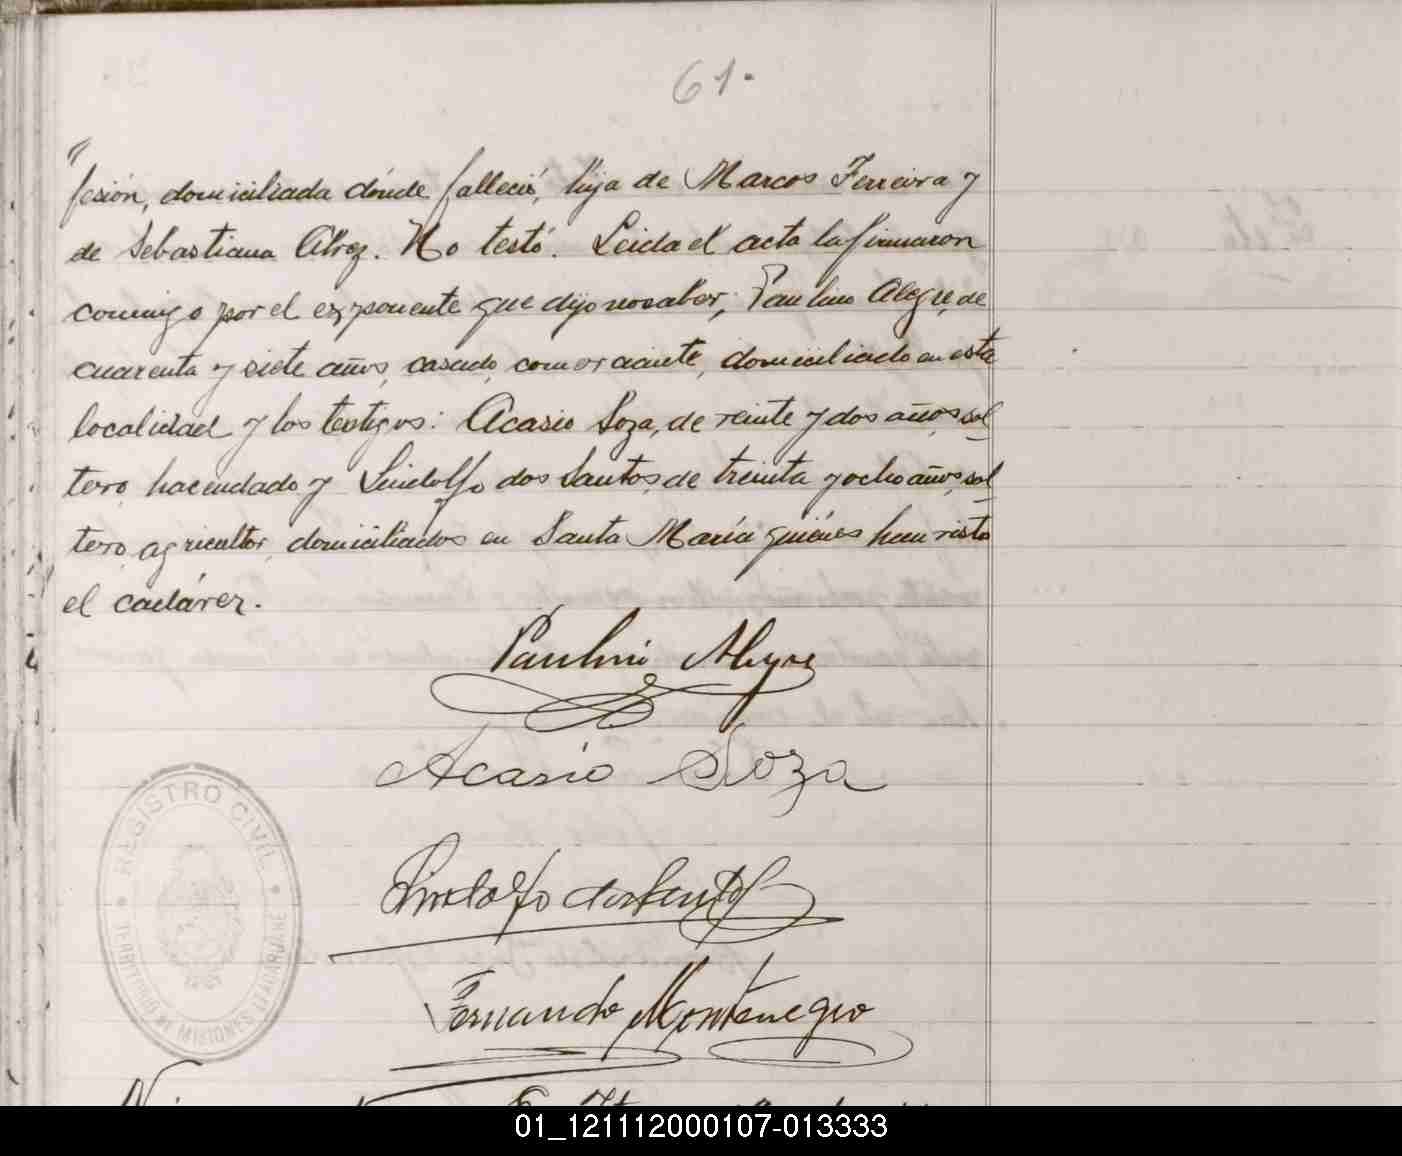 61.
"
fesión, domiciliada dónde falleció, hija de Marcos Ferreira y
de Sebastiana Alvez. No testó. Leida el acta la firmaron
conmigo por el exponente que dijo no saber, Paulino Alegre, de
cuarenta y siete años, casado, comerciante, domiciliado en esta
localidad y los testigos: Acasio Soza, de veinte y dos años, sol
tero, hacendado y Lindolfo dos Santos, de treinta y ocho años, sol
tero, agricultor, domiciliados en Santa María quiénes han visto
el cadáver.
Paulino Alegre
Acasio Soza
Lindolfo dos Santos
Fernando Montenegro
REGISTRO CIVIL
TERRITORIO DE MISIONES
01_121112000107-013333